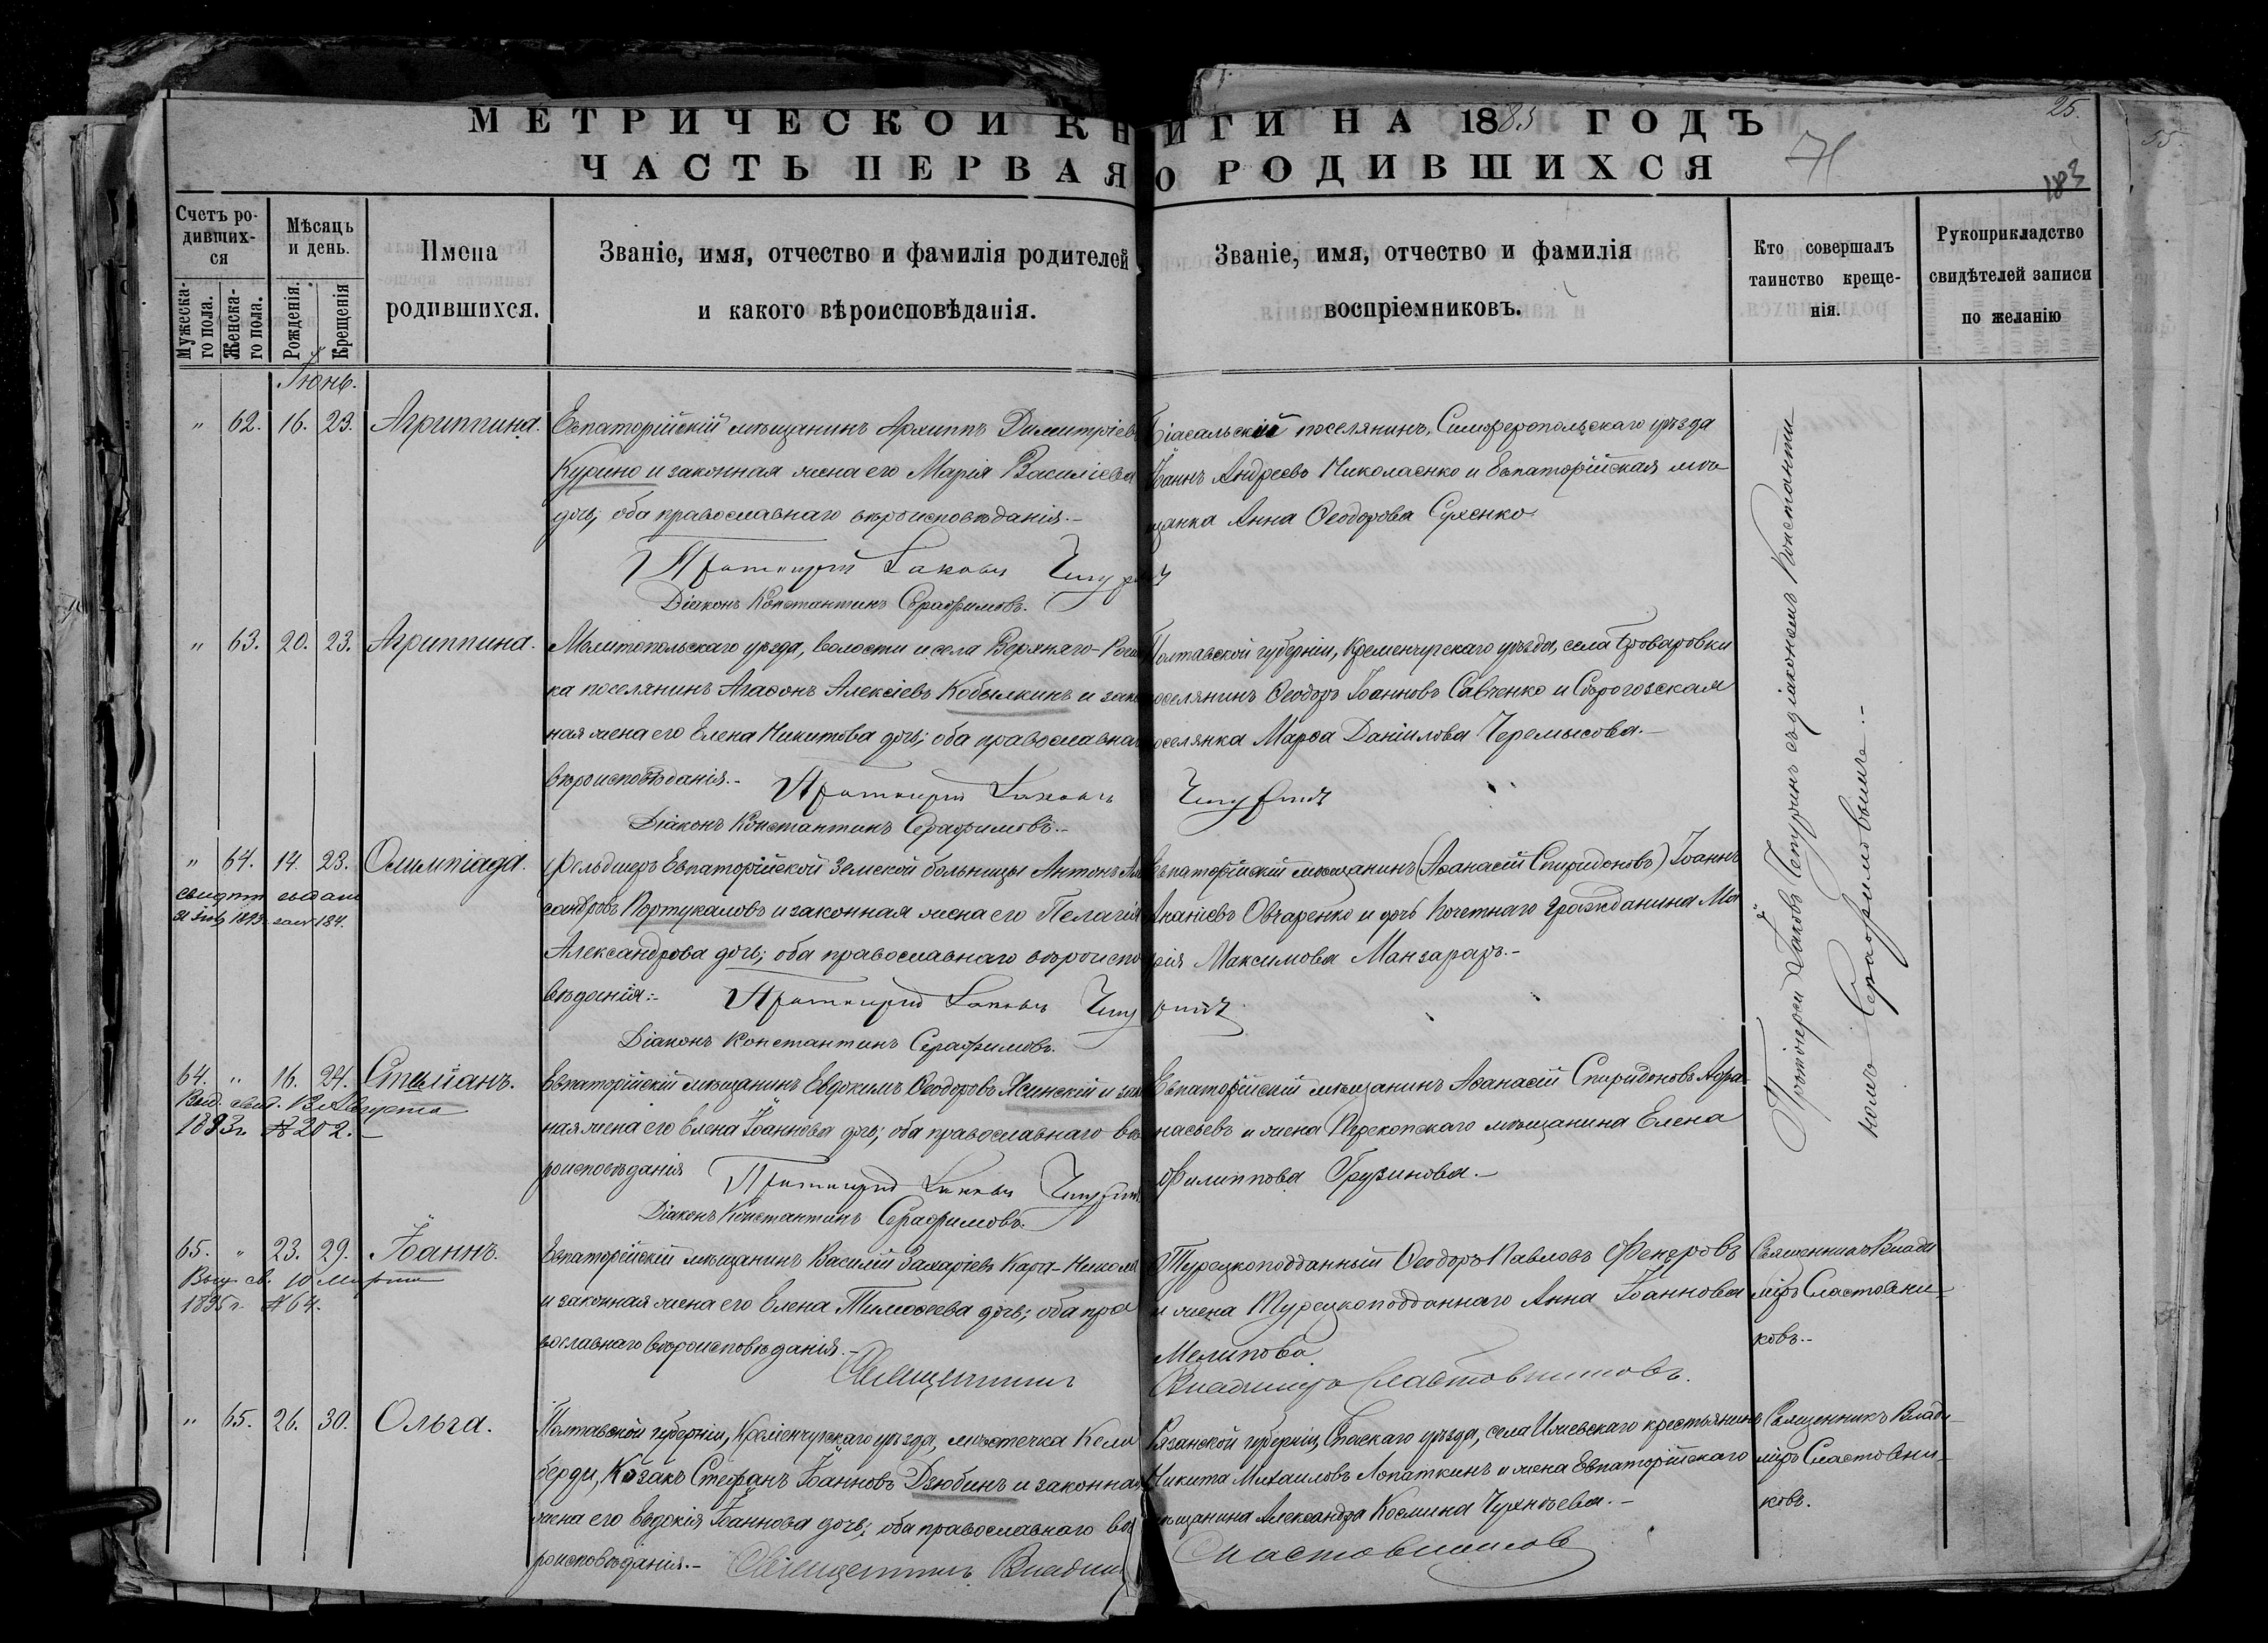 МЕТРИЧЕСКОЙ КНИГИ НА 1883 ГОДЪ
ЧАСТЬ ПЕРВАЯ О РОДИВШИХСЯ
25.
55.
71
183
Счетъ родивших-
ся
Мужеска-
го пола.
Женска-
го пола.
Мѣсяць
и день.
Рожденія.
Крещенія
Имена
родившихся.
Званіе, имя, отчество и фамилія родителей
и какого вѣроисповѣданія.
Званіе, имя, отчество и фамилія
воспріемниковъ.
Кто совершалъ
таинство креще-
нія.
Рукоприкладство
свидѣтелей записи
по желанію
Іюнь.
" 62. 16. 23. Агриппина.
Евпаторійскій мѣщанинъ Архиппъ Димитріевъ
Курино и законная жена его Марія Василіева
дочь; оба православнаго вѣроисповѣданія.-
Протоіерей Іаковъ Чепуринъ
Діаконъ Константинъ Серафимовъ.
Біасальскій поселянинъ, Симферопольскаго уѣзда
Іоаннъ Андреевъ Николаенко и Евпаторійская мѣ-
щанка Анна Ѳеодорова Сухенко
Протоіерей Іаковъ Чепуринъ съ діакономъ Константи-
номъ Серафимовымъ.-
" 63. 20. 23. Агриппина.
Мелитопольскаго уѣзда, волости и села Верхняго-Рога-
ка поселянинъ Агаѳонъ Алексіевъ Кобылкинъ и закон
ная жена его Елена Никитова дочь; оба православнаго
вѣроисповѣданія.- Протоіерей Іаковъ Чепуринъ
Діаконъ Константинъ Серафимовъ.-
Полтавской губерніи, Кременчугскаго уѣзда, села Броваровки
поселянинъ Ѳеодоръ Іоанновъ Савченко и Сѣрогозская
поселянка Марѳа Даніилова Черемысова.-
" 64. 14. 23. Олимпіада.
свидѣт выдано
1893 184.
Фельдшеръ Евпаторійской Земской больницы Антонъ Але
сандровъ Портукаловъ и законная жена его Пелагія
Александрова дочь; оба православнаго вѣроиспо
вѣданія:- Протоіерей Іаковъ Чепуринъ
Діаконъ Константинъ Серафимовъ.
Евпаторійскій мѣщанинъ (Аѳанасій Спиридоновъ) Іоаннъ
Ананіевъ Овчаренко и дочь Почетнаго Гражданина Ма
рія Максимова Мангараръ.-
64. " 16. 24. Стиліанъ.
Выд. свид. 13 Августа
1893г. № 202.-
Евпаторійскій мѣщанинъ Евдокимъ Ѳеодоровъ Ясинскій и закон
ная жена его Елена Іоаннова дочь; оба православнаго вѣ
роисповѣданія Протоіерей Іаковъ Чепуринъ
Діаконъ Константинъ Серафимовъ.
Евпаторійскій мѣщанинъ Аѳанасій Спиридоновъ Аѳа-
насьевъ и жена Перекопскаго мѣщанина Елена
Филиппова Грузинова.-
65. " 23. 29. Іоаннъ.
Выд. св. 10 Марта
1895г. № 64.
Евпаторійскій мѣщанинъ Василій Захаріевъ Кара-Никола
и законная жена его Елена Тимоѳеева дочь; оба пра
вославнаго вѣроисповѣданія.-
Священникъ Владиміръ Сластовниковъ.
Турецкоподданный Ѳеодоръ Павловъ Фендровъ
и жена Турецкоподданнаго Анна Іоаннова
Мелипова.
Священникъ Влади
міръ Сластовни-
ковъ.-
" 65. 26. 30. Ольга.
Полтавской губерніи, Кременчугскаго уѣзда, мѣстечка Келе
берди, Козакъ Стефанъ Іоанновъ Дзюбинъ и законная
жена его Евдокія Іоаннова дочь; оба православнаго вѣ
роисповѣданія.- Священникъ Владиміръ Сластовниковъ
Рязанской губерніи, Спаскаго уѣзда, села Ижевскаго крестьянинъ
Никита Михаиловъ Лопаткинъ и жена Евпаторійскаго
мѣщанина Александра Космина Чухнѣева.-
Священникъ Влади-
міръ Сластовни-
ковъ.